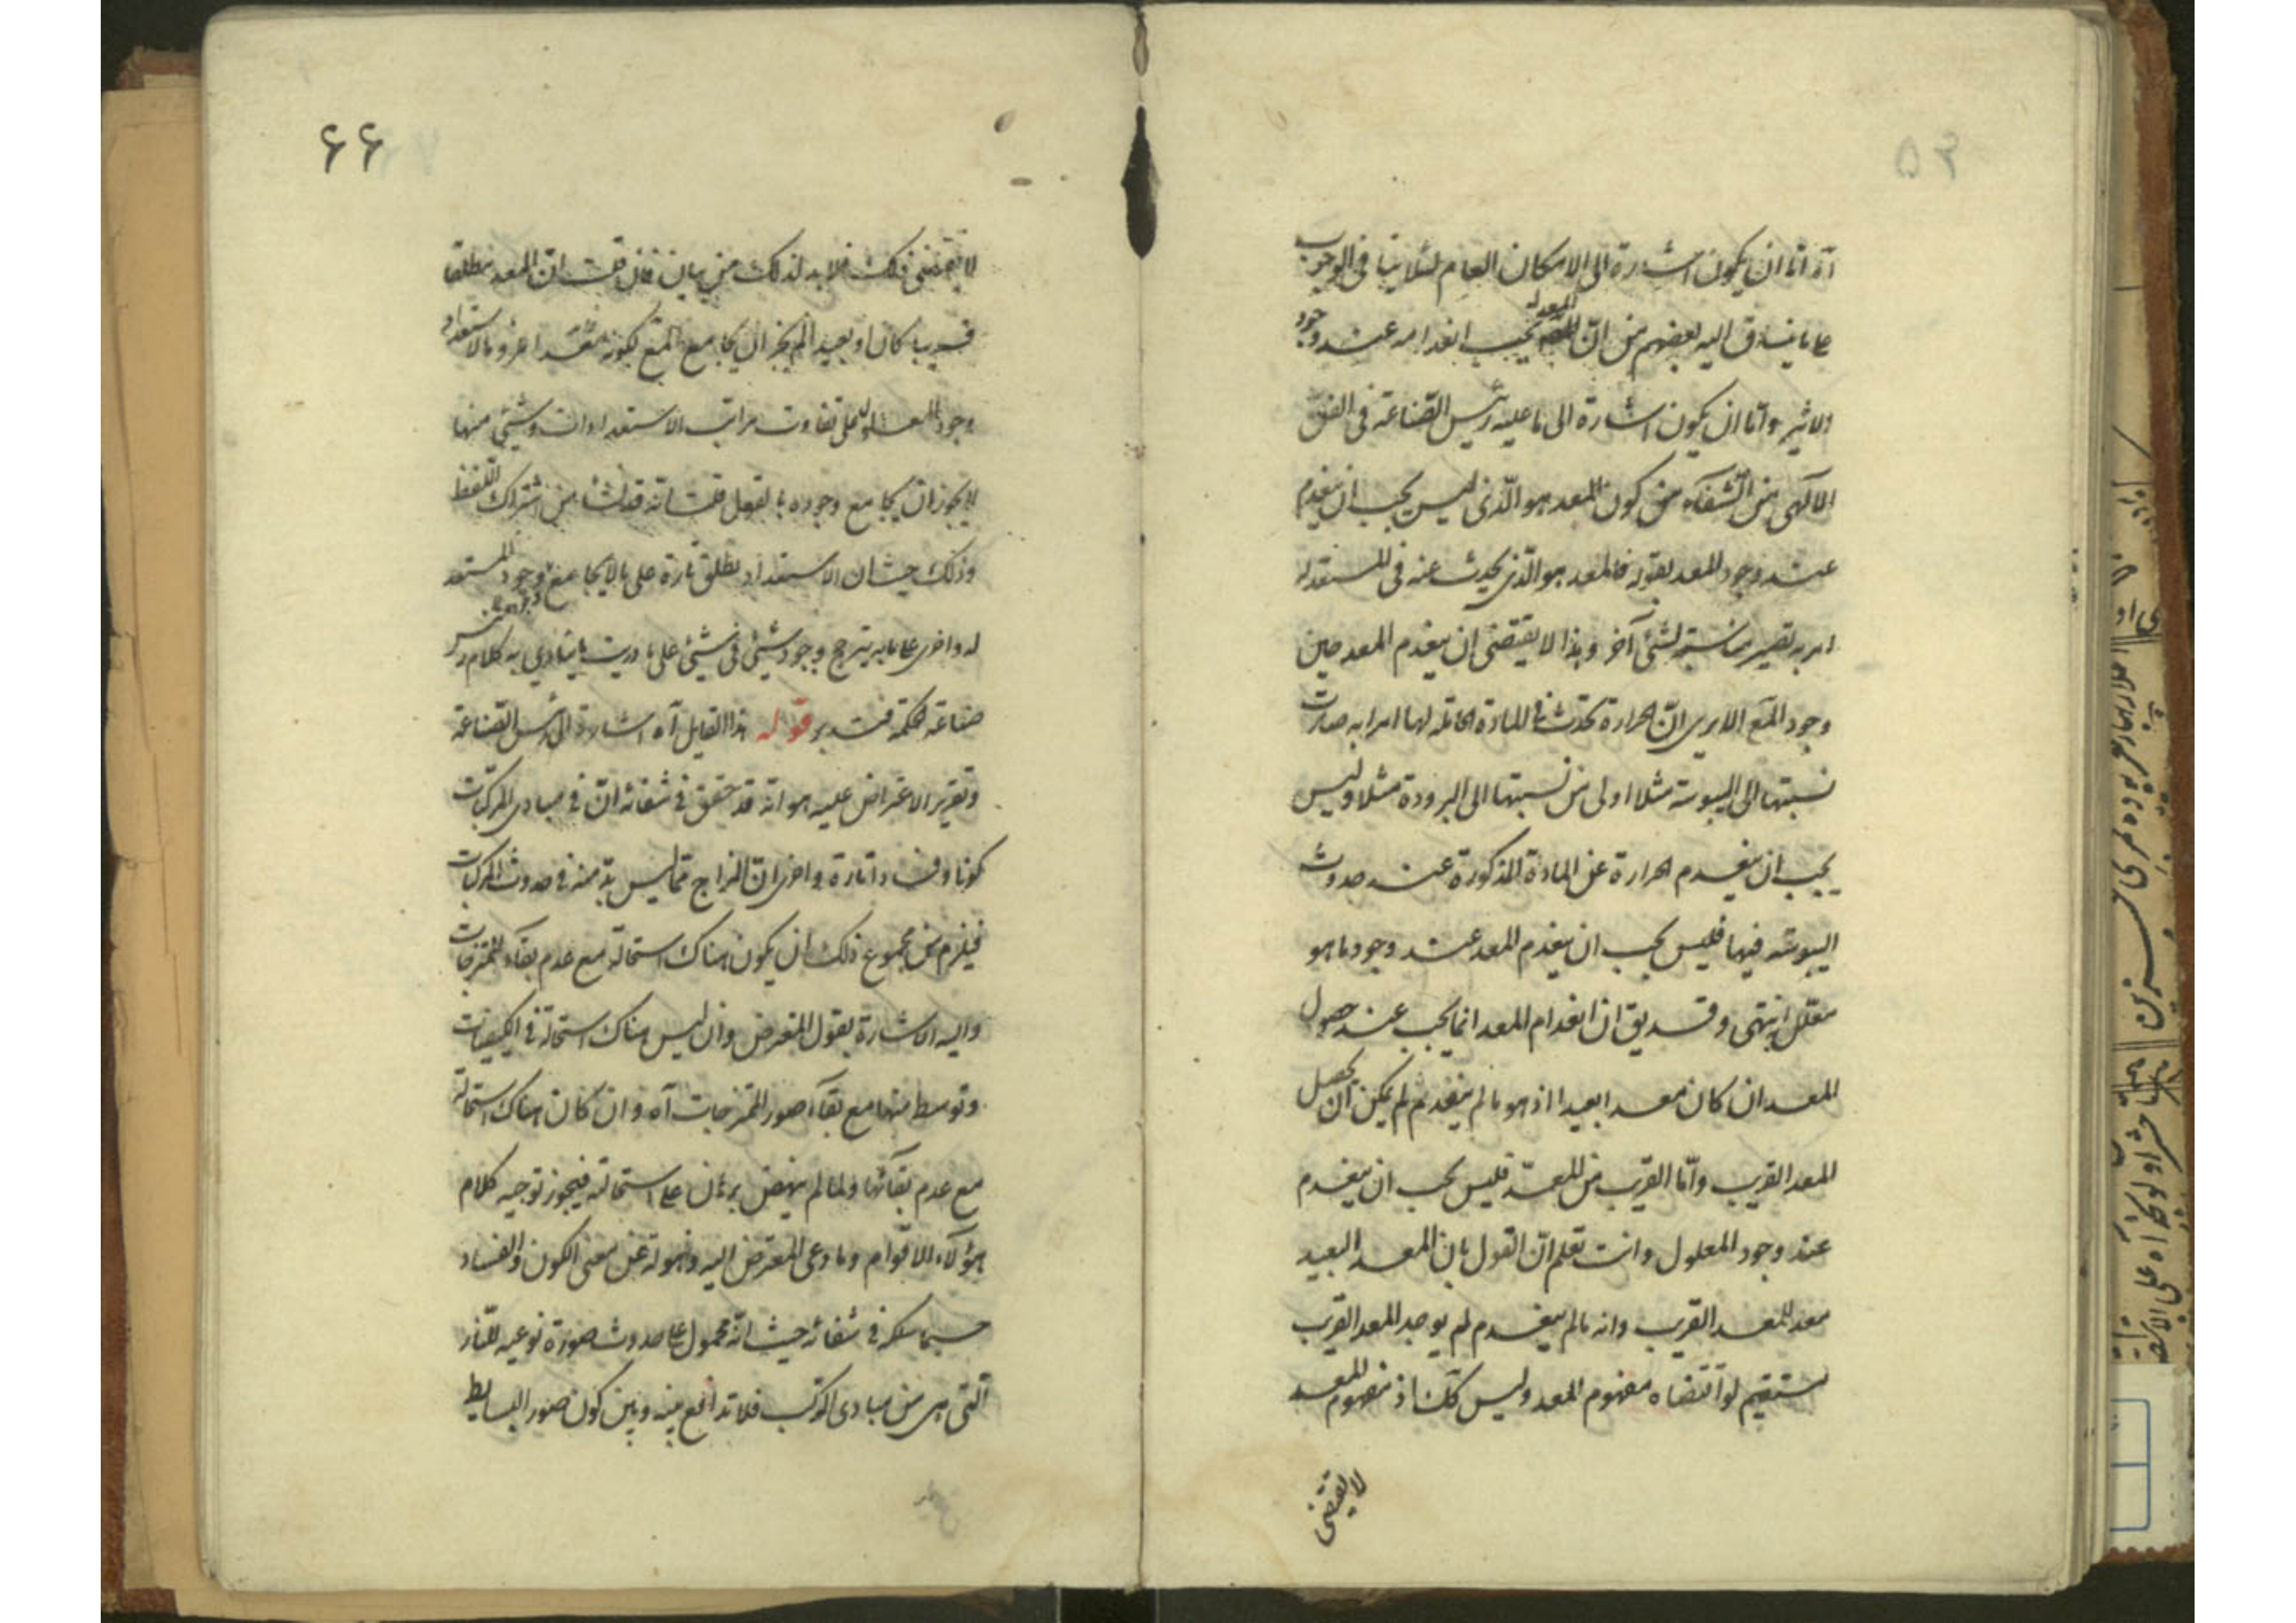 آه اما ان يكون اشارة الى الامكان العام لئلا ينافى الوجوب
على ما ينساق اليه بعضهم من ان المعد له يجب انعدامه عند وجود
الاثر واما ان يكون اشارة الى ما عليه رئيس الصناعة فى الفن
الالهى من الشفاء من كون المعد هو الذى ليس يجب ان ينعدم
عند وجود المعد بقوله فالمعد هو الذى يحدث عنه فى المستعد له
امر به تصير مناسبته لشئ آخر وهذا لا يقتضى ان ينعدم المعد حين
وجود المع الا يرى ان الحرارة تحدث فى المادة الحاملة لها امرا به صارت
نسبتها الى اليبوسة مثلا اولى من نسبتها الى البرودة مثلا وليس
يجب ان ينعدم الحرارة عن المادة المذكورة عند حدوث
اليبوسة فيها فليس يجب ان ينعدم المعد عند وجود ما هو
معلل انتهى وقد يق ان انعدام المعد انما يجب عند حصول
المعد ان كان معدا بعيدا اذ هو ما لم ينعدم لم يكن ان يحصل
المعد القريب واما القريب من المعد فليس يجب ان ينعدم
عند وجود المعلول وانت تعلم ان القول بان المعد البعيد
معد للمعد القريب وانه ما لم ينعدم لم يوجد المعد القريب
يستقيم لو اقتضاه مفهوم المعد وليس كك اذ مفهوم المعد
لا يقتضى
۶۶
لا يقتضى ذلك فلا بد لذلك من بيان فان قلت ان المعد مطلقا
قريبا كان او بعيدا لم يجز ان يجامع المع لكونه مفسدا عروة الاستعداد
وجود المعلول على تفاوت مراتب الاستعدادات وشئ منها
لا يجوز ان يجامع وجوده بالفعل قلت انه قد نشأ من اشتراك اللفظ
وذلك حيث ان الاستعداد يطلق تارة على ما لا يجامع وجوده وجود المستعد
له واخرى على ما به يترجح وجود شئ فى شئ على ما دريت ما ينادى به كلام رئيس
صناعة الحكمة فتدبر قوله هذا القايل آه اشارة الى رئيس الصناعة
وتقرير الاعتراض عليه هو انه قد حقق فى شفائه ان فى مبادى المركبات
كونا وفسادا تارة واخرى ان المزاج مما ليس بد منه فى حدوث المركبات
فيلزم من مجموع ذلك ان يكون هناك استحالة مع عدم بقاء الممتزجات
واليه الاشارة بقول المعترض وان ليس هناك استحالة فى الكيفيات
وتوسط منها مع بقاء صور الممتزجات آه وان كان هناك استحالة
مع عدم بقائها ولما لم ينهض برهان على استحالته فيجوز توجيه كلام
هؤلاء الاقوام وما دعى المعترض اليه ذهوله عن معنى الكون والفساد
حسبما سلكه فى شفائه حيث انه محمول على حدوث صورة نوعيه للنار
التى هى من مبادى المركب فلا تدافع بينه وبين كون صور البسايط